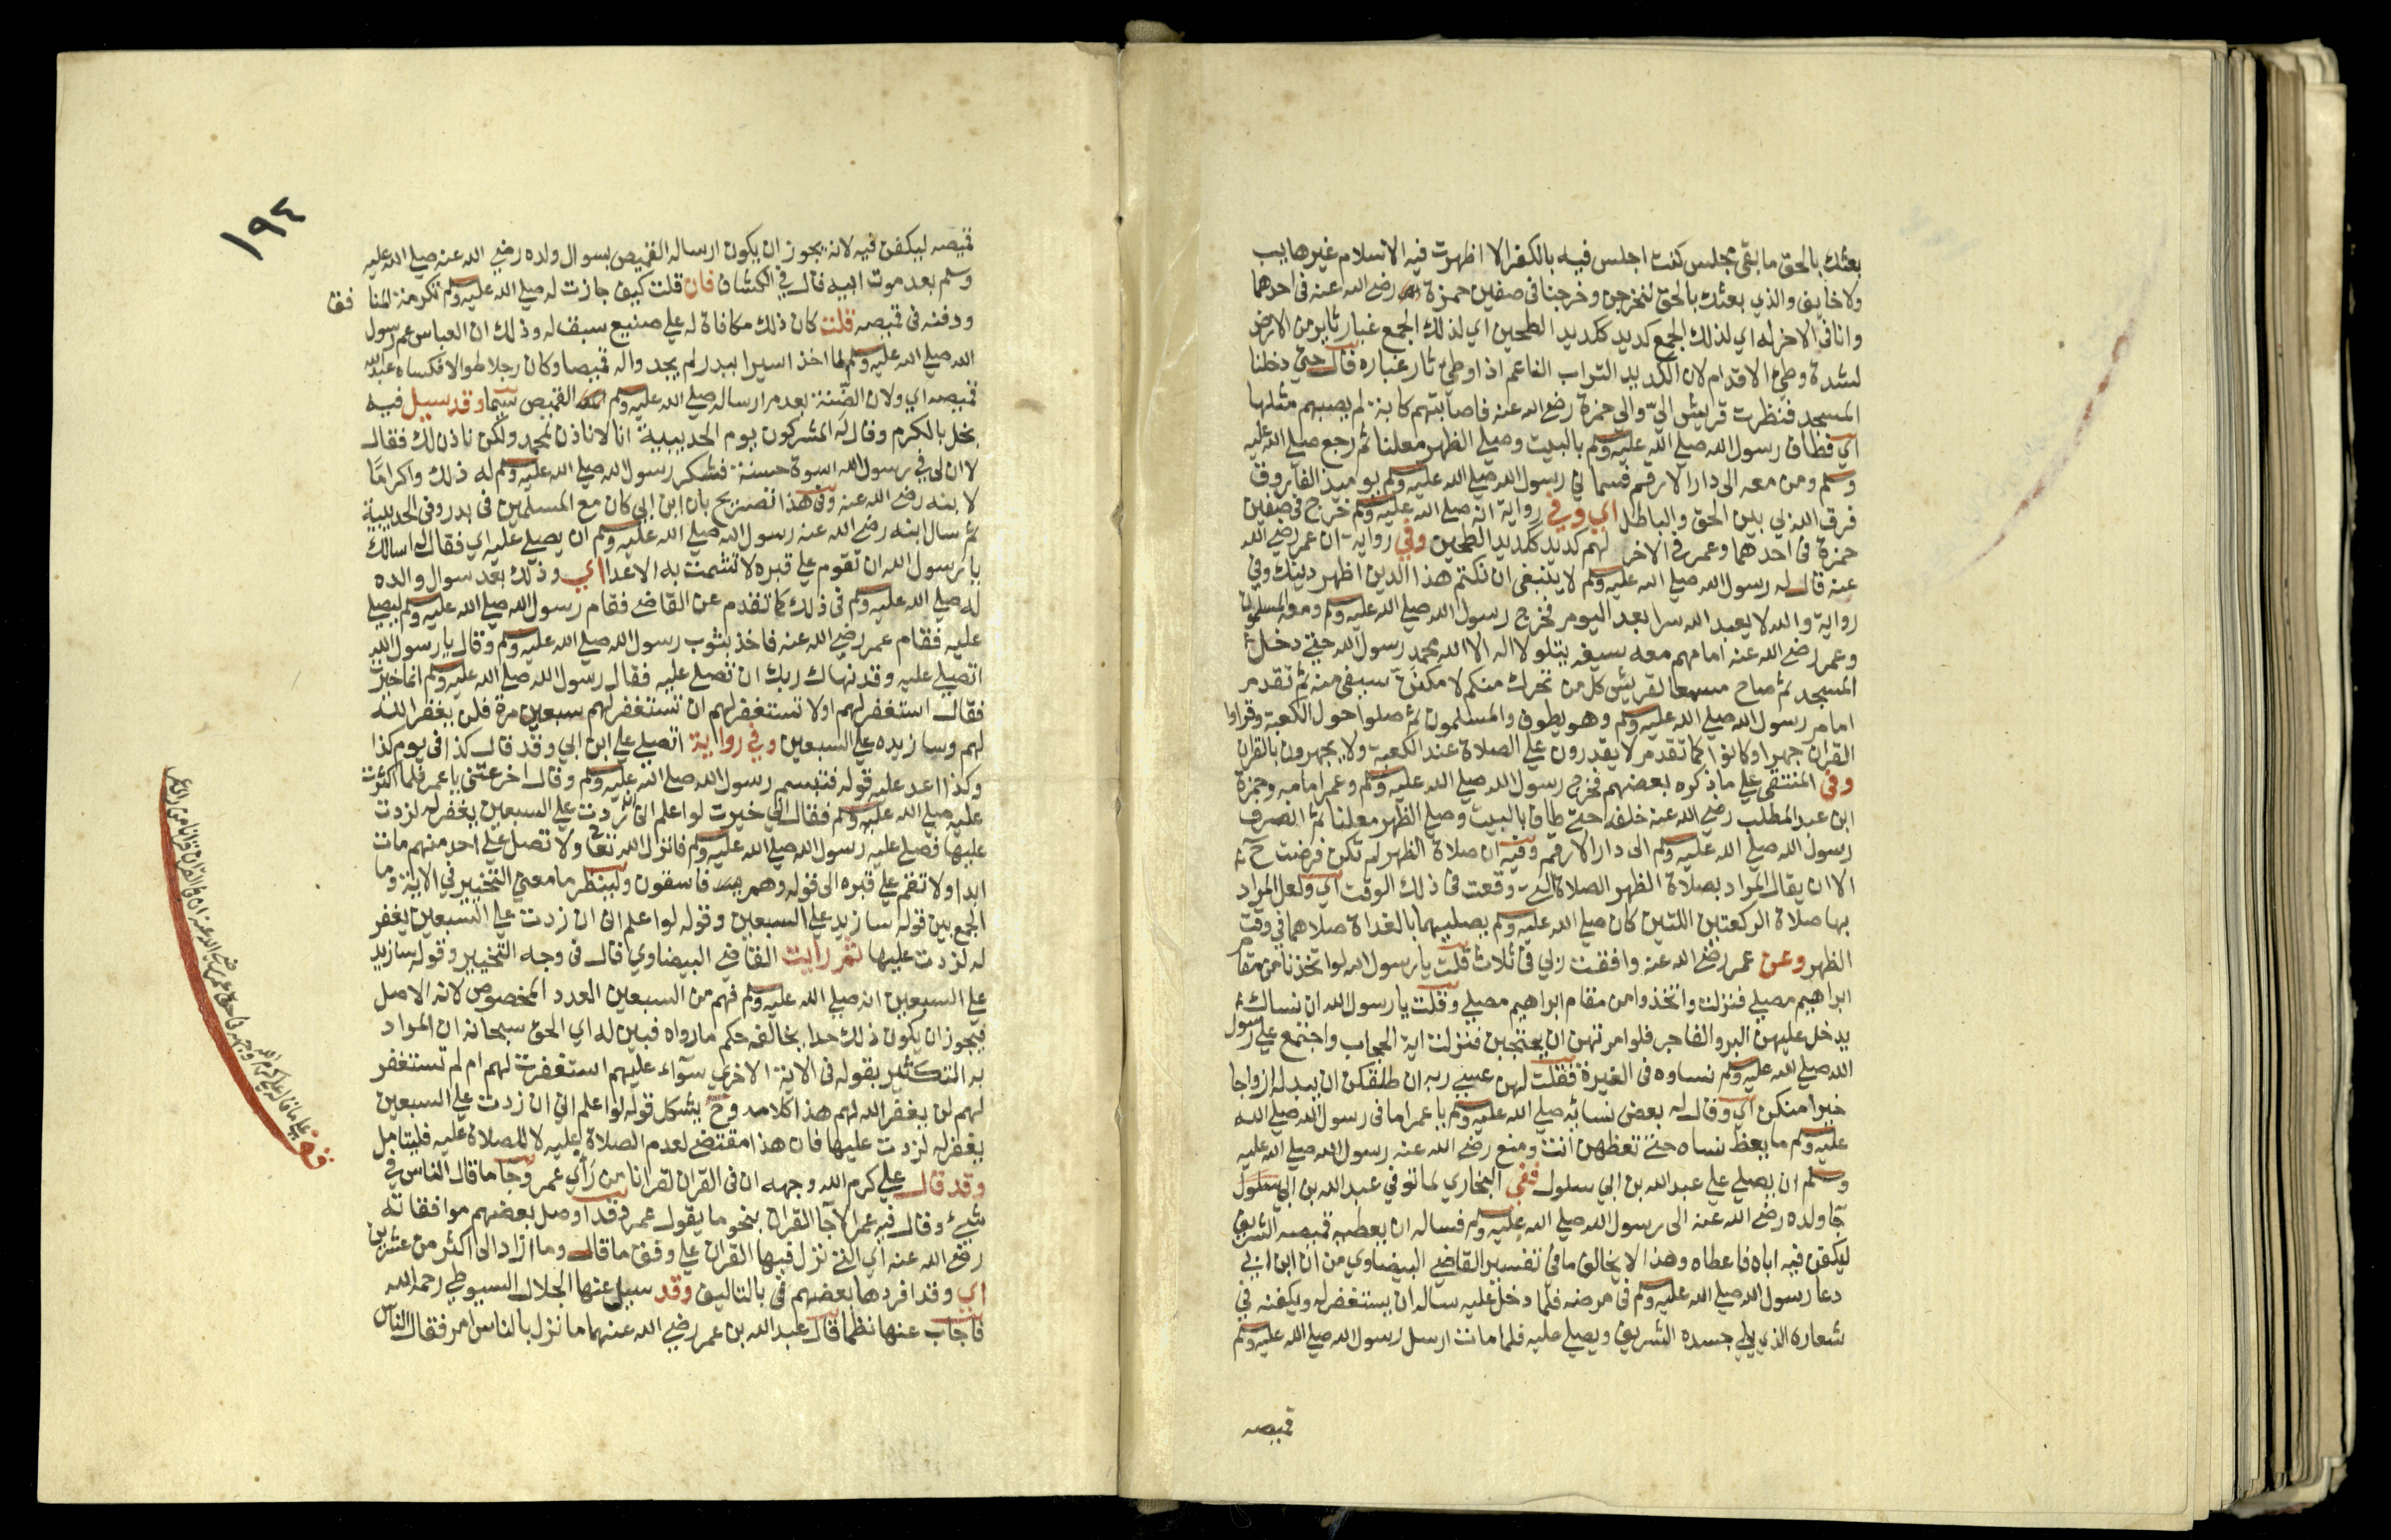 بعثك بالحق ما بقى مجلس كنت اجلس فيه بالكفر الا اظهرت فيه الاسلام غير هايب
ولا خايف والذي بعثك بالحق لنخرجن وخرجنا فى صفين حمزة رضي الله عنه فى احدهما
وانا فى الاخر له اي لذلك الجمع كديد ككديد الطحين اي لذلك الجمع غبار ثاير من الارض
لشدة وطي الاقدام لان الكديد التراب الناعم اذا وطي ثار غباره قال حتى دخلنا
المسجد فنظرت قريش الىّ والى حمزة رضي الله عنه فاصابتهم كابة لم يصبهم مثلها
اي فطاف رسول الله صلى الله عليه وسلم بالبيت وصلى الظهر معلنا ثم رجع صلى الله عليه
وسلم ومن معه الى دار الارقم فسماني رسول الله صلى الله عليه وسلم يوميذ الفاروق
فرق الله بي بين الحق والباطل اي وفي رواية انه صلى الله عليه وسلم خرج فى صفين
حمزة فى احدهما وعمر فى الاخر لهم كديد ككديد الطحين وفي رواية ان عمر رضي الله
عنه قال له رسول الله صلى الله عليه وسلم لا ينبغى ان نكتم هذا الدين اظهر دينك وفي
رواية والله لا يعبد الله سرا بعد اليوم فخرج رسول الله صلى الله عليه وسلم ومعه المسلمون
وعمر رضي الله عنه امامهم معه سيفه يتلو لا اله الا الله محمد رسول الله حتى دخل
المسجد ثم صاح مسمعا لقريش كل من تحرك منكم لامكنن سيفى منه ثم تقدم
امام رسول الله صلى الله عليه وسلم وهو يطوف والمسلمون ثم صلوا حول الكعبة وقراوا
القران جهرا وكانوا كما تقدم لا يقدرون على الصلاة عند الكعبة ولا يجهرون بالقران
وفى المنتقى على ما ذكره بعضهم فخرج رسول الله صلى الله عليه وسلم وعمر امامه وحمزة
ابن عبد المطلب رضي الله عنه خلفه حتى طاف بالبيت وصلى الظهر معلنا ثم انصرف
رسول الله صلى الله عليه وسلم الى دار الارقم وفيه ان صلاة الظهر لم تكن فرضت ح
الا ان يقال المراد بصلاة الظهر الصلاة التى وقعت فى ذلك الوقت اي ولعل المراد
بها صلاة الركعتين اللتين كان صلى الله عليه وسلم يصليهما بالغداة صلاهما فى وقت
الظهر وعن عمر رضي الله عنه وافقت ربي فى ثلاث قلت يا رسول الله لو اتخذنا من مقام
ابراهيم مصلى فنزلت واتخذوا من مقام ابراهيم مصلى وقلت يا رسول الله ان نساك
يدخل عليهن البر والفاجر فلو امرتهن ان يحتجبن فنزلت اية الحجاب واجتمع على رسول
الله صلى الله عليه وسلم نساوه فى الغيرة فقلت لهن عسى ربه ان طلقكن ان يبدله ازواجا
خيرا منكن اي وقال له بعض نسائه صلى الله عليه وسلم يا عمر اما فى رسول الله صلى الله
عليه وسلم ما يعظ نساه حتى تعظهن انت ومنع رضي الله عنه رسول الله صلى الله عليه
وسلم ان يصلى على عبد الله بن ابي سلول ففي البخاري لما توفي عبد الله بن ابي سلول
جآ ولده رضي الله عنه الى رسول الله صلى الله عليه وسلم فساله ان يعطيه قميصه الشريف
ليكفن فيه اباه فاعطاه وهذا لا يخالف ما فى تفسير القاضى البيضاوي من ان ابن ابي
دعا رسول الله صلى الله عليه وسلم فى مرضه فلما دخل عليه ساله ان يستغفر له ويكفنه في
شعاره الذي يلي جسده الشريف ويصلى عليه فلما مات ارسل رسول الله صلى الله عليه وسلم
قميصه
١٩٤
قميصه ليكفن فيه لانه يجوز ان يكون ارساله القميص بسوال ولده رضي الله عنه صلى الله عليه
وسلم بعد موت ابيه قال في الكشاف فان قلت كيف جازت له صلى الله عليه وسلم تكرمة المنافق
ودفنه فى قميصه قلت كان ذلك مكافاة له على صنيع سبق له وذلك ان العباس عم رسول
الله صلى الله عليه وسلم لما اخذ اسيرا ببدر لم يجدوا له قميصا وكان رجلا طوالا فكساه عبد الله
قميصه اي ولان الضنة بعدم ارساله صلى الله عليه وسلم القميص سيما وقد سيل فيه
بخل بالكرم وقال له المشركون يوم الحديبية انا لا ناذن لمحمد ولكن ناذن لك فقال
لا ان لي في رسول الله اسوة حسنة فشكر رسول الله صلى الله عليه وسلم له ذلك واكرامًا
لابنه رضي الله عنه وفى هذا تصريح بان ابن ابي كان مع المسلمين فى بدر وفى الحديبية
ثم سال ابنه رضي الله عنه رسول الله صلى الله عليه وسلم ان يصلى عليه اي فقال له اسالك
يا رسول الله ان تقوم على قبره لا تشمت به الاعدا اي وذلك بعد سوال والده
له صلى الله عليه وسلم فى ذلك كما تقدم عن القاضى فقام رسول الله صلى الله عليه وسلم ليصلى
عليه فقام عمر رضي الله عنه فاخذ بثوب رسول الله صلى الله عليه وسلم وقال يا رسول الله
اتصلى عليه وقد نهاك ربك ان تصلى عليه فقال رسول الله صلى الله عليه وسلم انما خيرت
فقال استغفر لهم اولا تستغفر لهم ان تستغفر لهم سبعين مرة فلن يغفر الله
لهم وسازيده على السبعين وفي رواية اتصلي على ابن ابي وقد قال كذا فى يوم كذا
وكذا اعد عليه قوله فتبسم رسول الله صلى الله عليه وسلم وقال اخر عني يا عمر فلما اكثرت
عليه صلى الله عليه وسلم فقال اني خيرت لو اعلم انى ان زدت على السبعين يغفر له لزدت
عليها فصلى عليه رسول الله صلى الله عليه وسلم فانزل الله تعا ولا تصل على احد منهم مات
ابدا ولا تقم على قبره الى قوله وهم فاسقون ولينظر ما معنى التخيير في الاية وما
الجمع بين قوله سازيد على السبعين وقوله لو اعلم انى ان زدت على السبعين يغفر
له لزدت عليها ثم رايت القاضى البيضاوي قال فى وجه التخيير وقوله سازيد
على السبعين انه صلى الله عليه وسلم فهم من السبعين العدد المخصوص لانه الاصل
فيجوز ان يكون ذلك حدا يخالفه حكم ما رواه فبين له اي الحق سبحانه ان المراد
به التكثير بقوله فى الاية الاخري سوآء عليهم استغفرت لهم ام لم تستغفر
لهم لن يغفر الله لهم هذا كلامه وح يشكل قوله لو اعلم اني ان زدت على السبعين
يغفر له لزدت عليها فان هذا مقتضى لعدم الصلاة عليه لا للصلاة عليه فليتامل
وقد قال على كرم الله وجهه ان فى القران لقرانا من رأي عمر وجآ ما قال الناس في
شئ وقال فيه عمر الا جآ القران بنحو ما يقول عمر وقد اوصل بعضهم موافقاته
رضي الله عنه اي التى نزل فيها القران على وفق ما قال وما اراد الى اكثر من عشرين
اي وقد افردها بعضهم فى بالتاليف وقد سيل عنها الجلال السيوطي رحمه الله
فاجاب عنها نظما قال عبد الله بن عمر رضي الله عنهما ما نزل بالناس امر فقال الناس